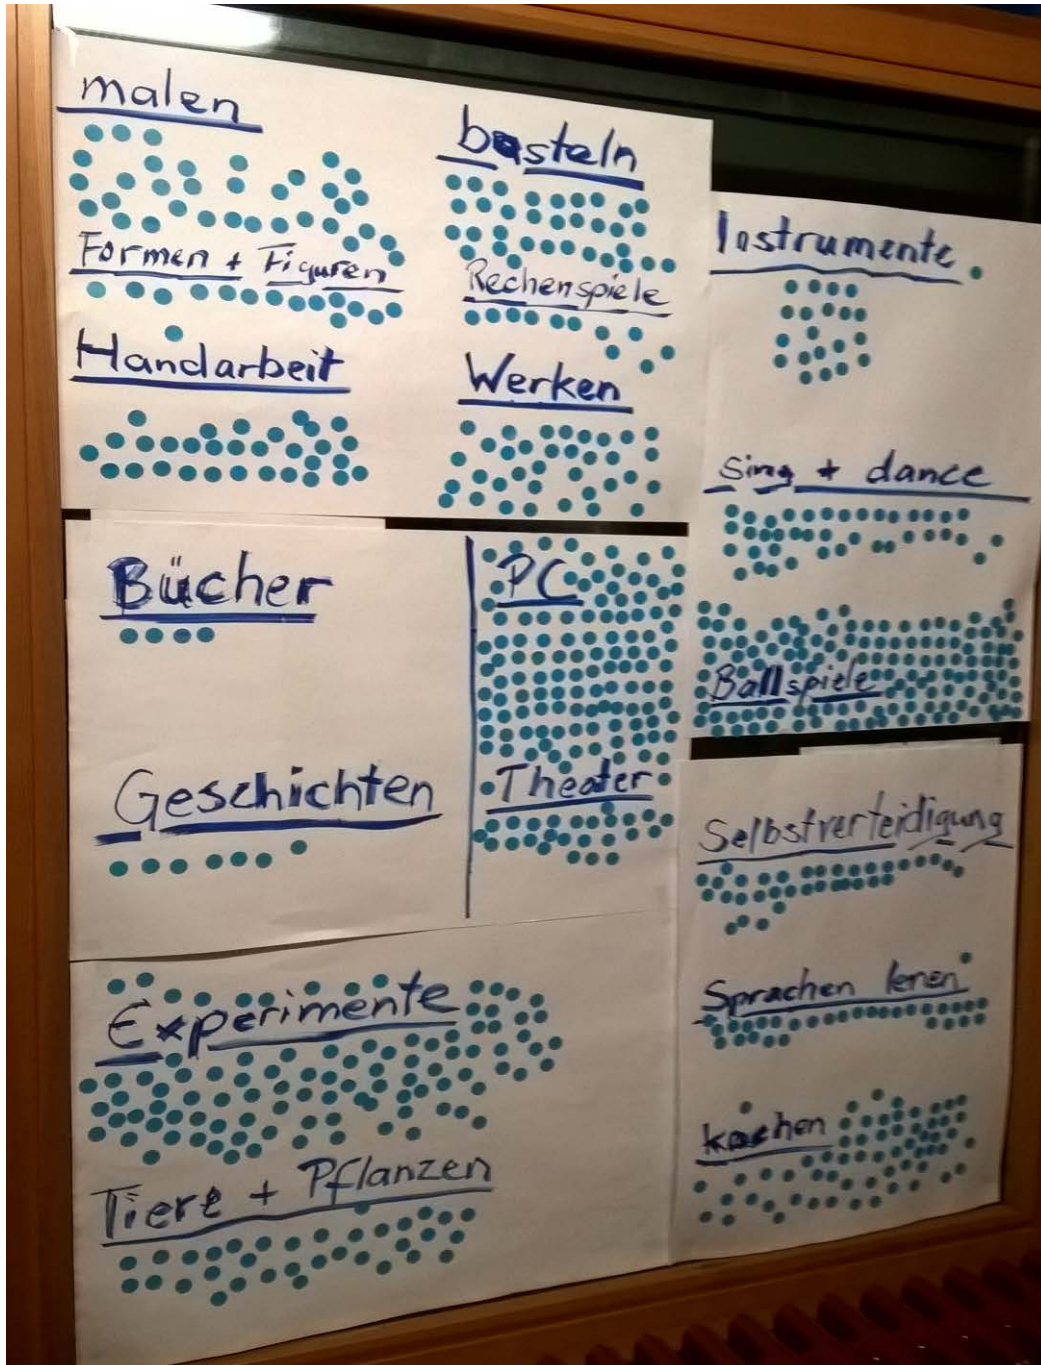 malen
basteln
Formen + Figuren
Rechenspiele
Handarbeit
Werken
Instrumente
Sing + dance
Ballspiele
Bücher
PC
Geschichten
Theater
Selbstverteidigung
Sprachen lenen
kochen
Experimente
Tiere + Pflanzen